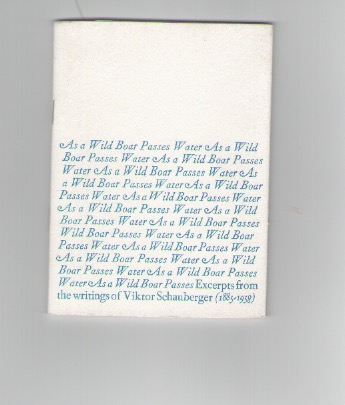 As a Wild Boar Passes Water As a Wild
Boar Passes Water As a Wild Boar Passes
Water As a Wild Boar Passes Water As
a Wild Boar Passes Water As a Wild Boar
Passes Water As a Wild Boar Passes Water
As a Wild Boar Passes Water As a Wild
Boar Passes Water As a Wild Boar Passes
Wild Boar Passes Water As a Wild Boar
Passes Water As a Wild Boar Passes Water
As a Wild Boar Passes Water As a Wild
Boar Passes Water As a Wild Boar Passes
Water As a Wild Boar Passes Excerpts from
the writings of Viktor Schauberger (1885-1958)